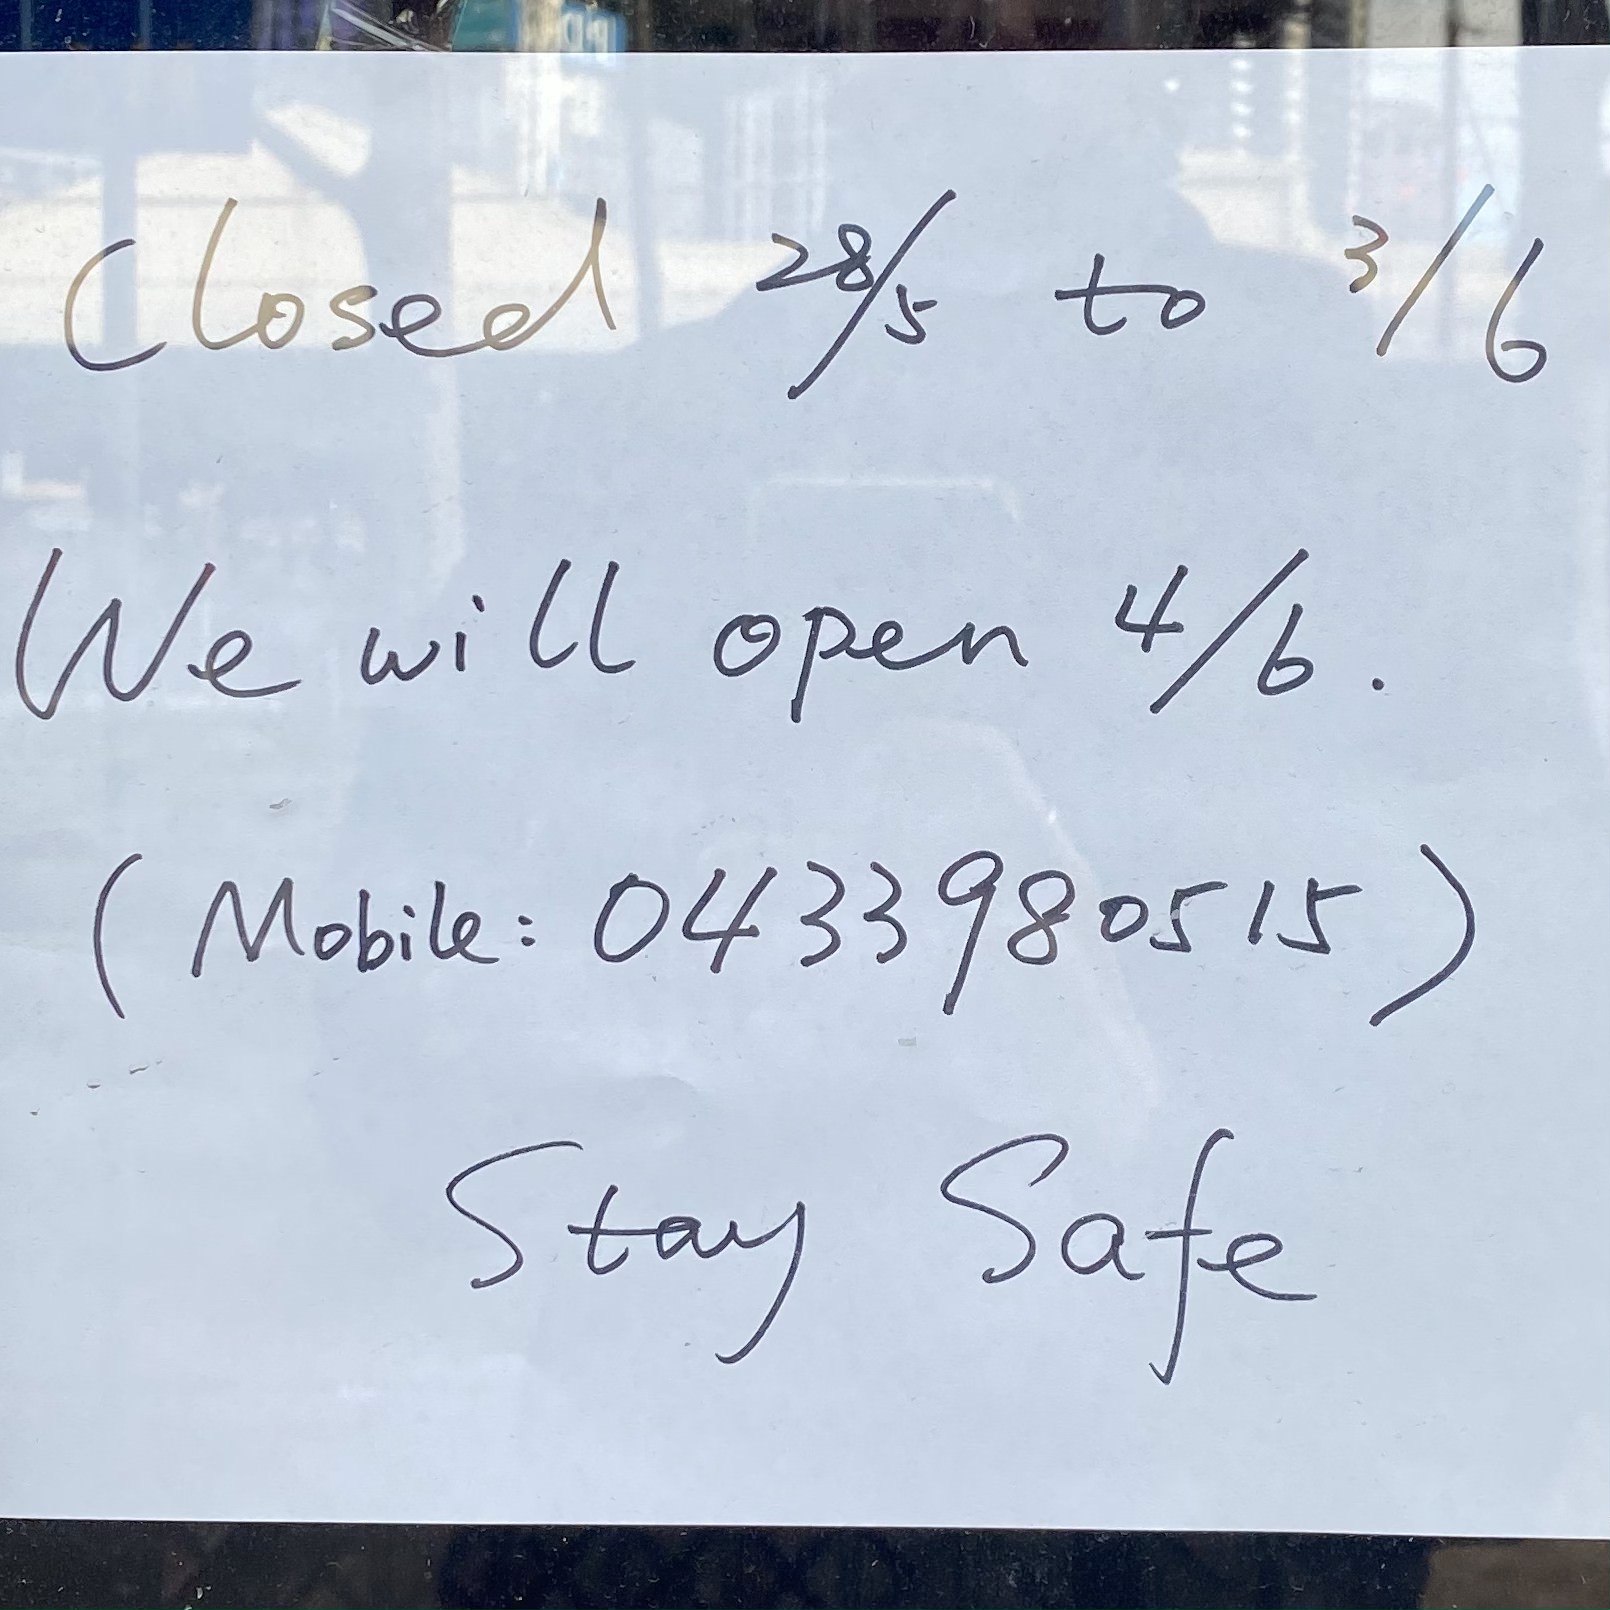 Closed 28/5 to 3/6
We will open 4/6.
(Mobile: 0433980515)
Stay Safe